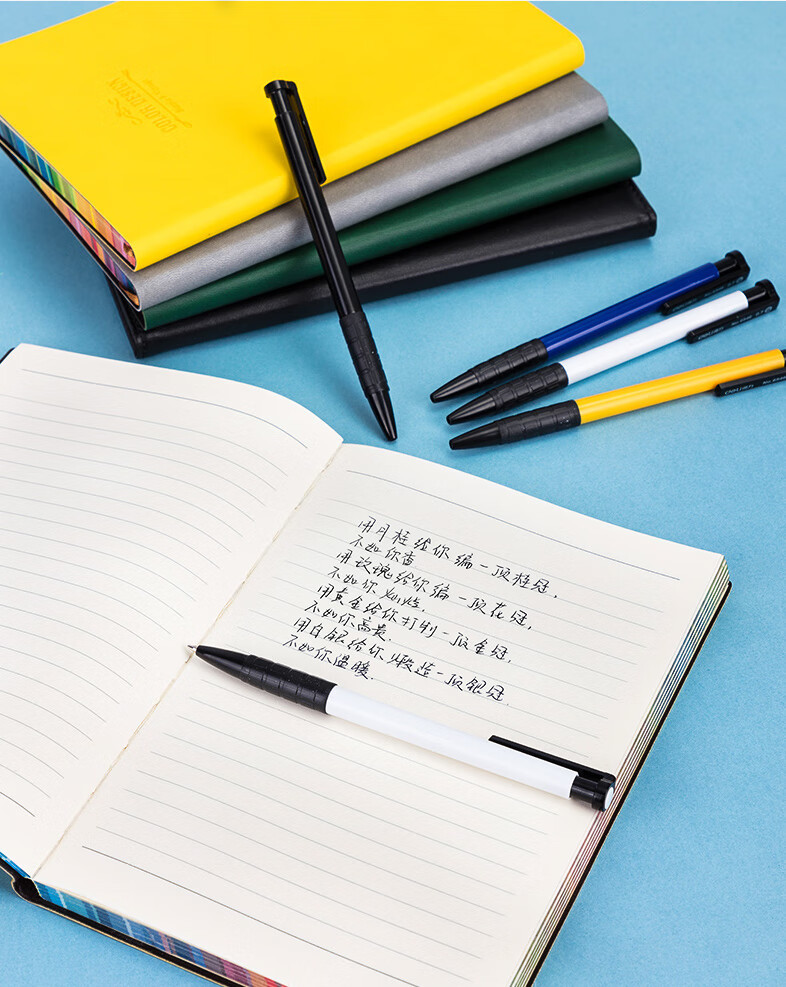 COLOR DESIGN
用月桂给你编一顶桂冠,
不如你香
用玫瑰给你编一顶花冠,
不如你灿烂.
用黄金给你打制一顶金冠,
不如你高贵.
用白银给你煅造一顶银冠.
不如你温暖.